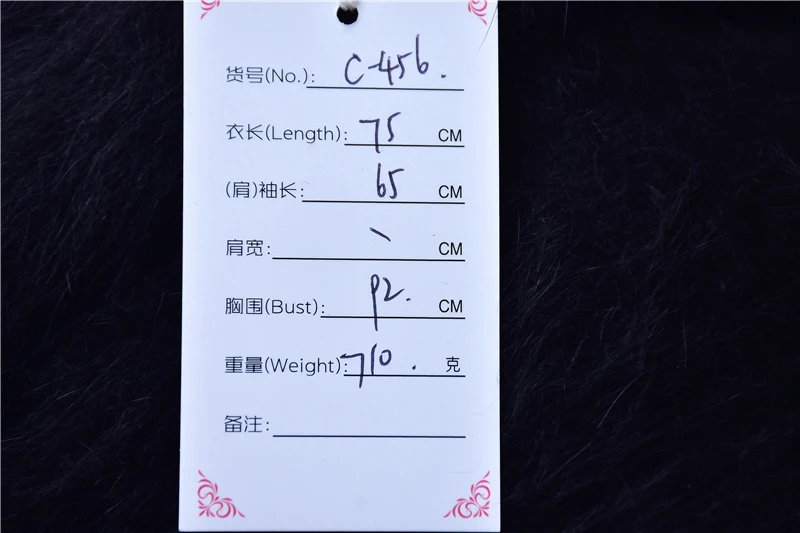 货号(No.): C-456.
衣长(Length): 75 CM
(肩)袖长: 65 CM
肩宽: \ CM
胸围(Bust): 92. CM
重量(Weight): 710. 克
备注: